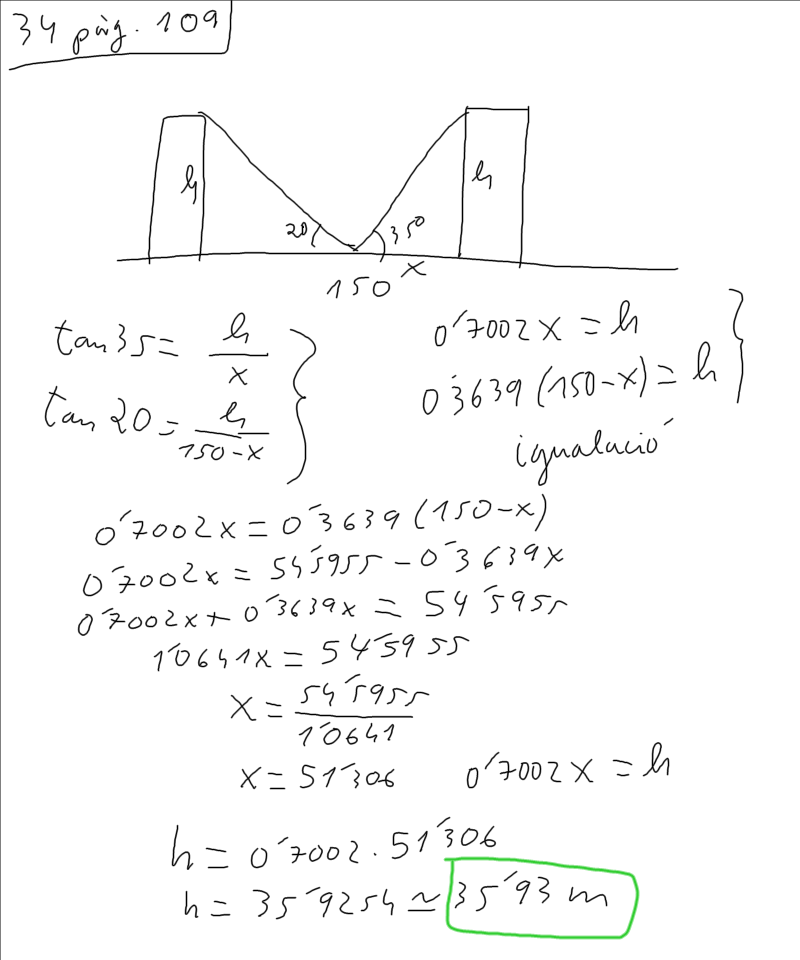 34 pàg. 109
h h
20 35º
150 x
tan 35 = h/x
tan 20 = h/(150-x)
0'7002x = h
0'3639 (150-x) = h
igualació
0'7002x = 0'3639 (150-x)
0'7002x = 54'5955 - 0'3639x
0'7002x + 0'3639x = 54'5955
1'0641x = 54'5955
x = 54'5955/1'0641
x = 51'306 0'7002x = h
h = 0'7002 · 51'306
h = 35'9254 ≃ 35'93 m